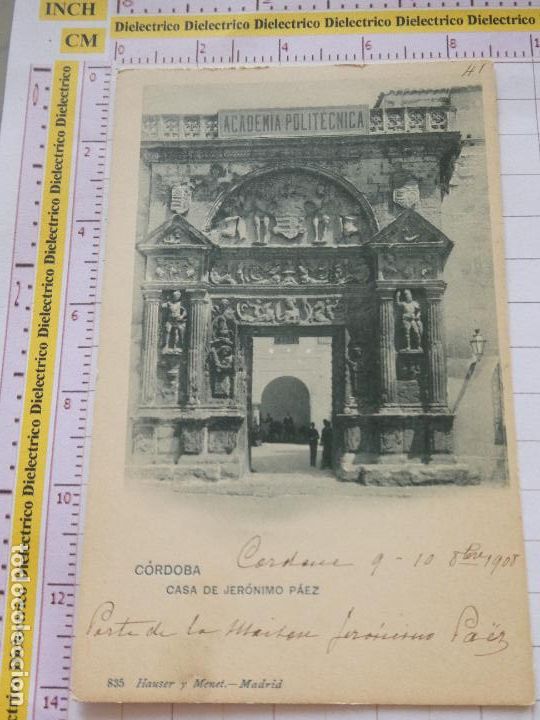 INCH
CM
Dielectrico Dielectrico Dielectrico Dielectrico Dielectrico Dielectrico
0 2 4 6 8 10
Dielectrico Dielectrico Dielectrico Dielectrico Dielectrico Dielectrico Dielectrico Dielectrico Dielectrico
0
2
4
6
8
10
12
14
41
ACADEMIA POLITECNICA
CÓRDOBA
CASA DE JERÓNIMO PÁEZ
Cordoue 9 - 10 8bre 1908
Porte de la Maison Jerónimo Paëz
835 Hauser y Menet.—Madrid
todocoleccion